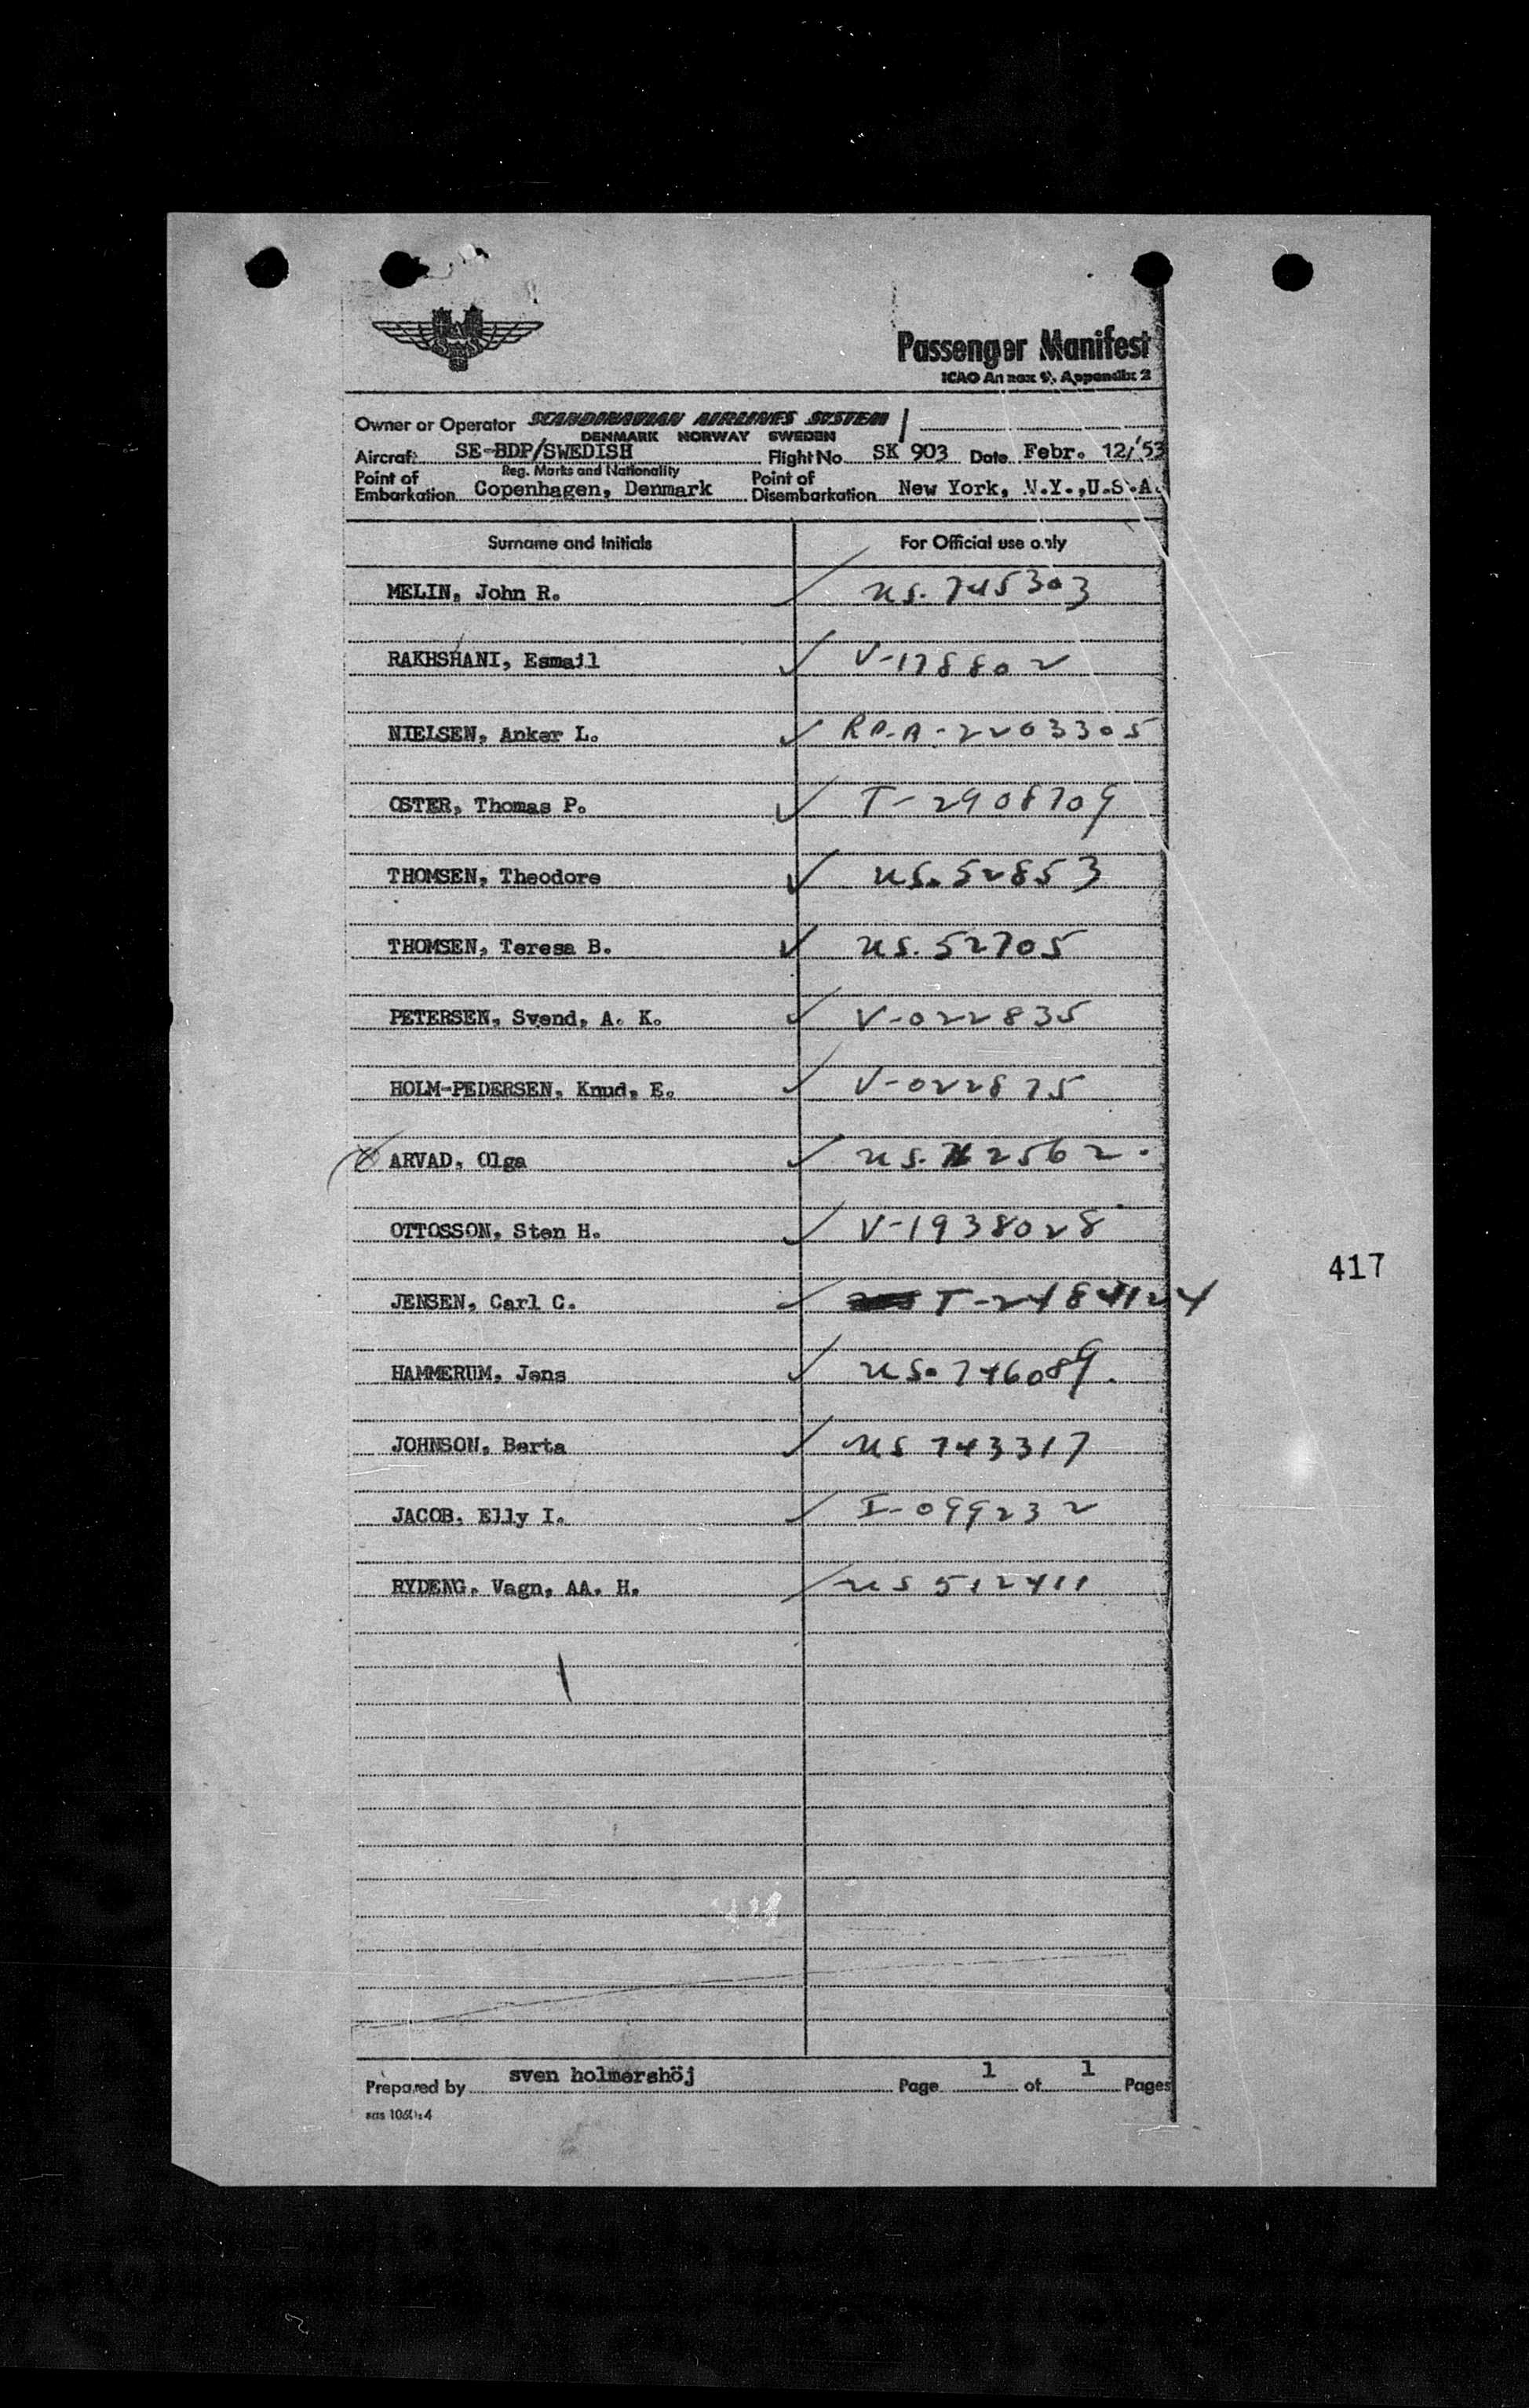 Passenger Manifest
ICAO Annex 9, Appendix 2
Owner or Operator SCANDINAVIAN AIRLINES SYSTEM
DENMARK NORWAY SWEDEN
Aircraft SE-BDP/SWEDISH Flight No. SK 903 Date Febr. 12/'53
Reg. Marks and Nationality
Point of Embarkation Copenhagen, Denmark Point of Disembarkation New York, N.Y.,U.S.A.
Surname and Initials For Official use only
MELIN, John R. US. 745303
RAKHSHANI, Esmail V-178802
NIELSEN, Anker L. RP.A-2203305
OSTER, Thomas P. T-2908709
THOMSEN, Theodore US. 52853
THOMSEN, Teresa B. US. 52705
PETERSEN, Svend, A. K. V-022835
HOLM-PEDERSEN, Knud, E. V-022875
ARVAD, Olga US.
OTTOSSON, Sten H. V-1938028
417
JENSEN, Carl C. T-2484124
HAMMERUM, Jens US. 746089.
JOHNSON, Berta US 743317
JACOB, Elly I. I-099232
RYDENG, Vagn, AA. H. US 512411
Prepared by sven holmershöj Page 1 of 1 Pages